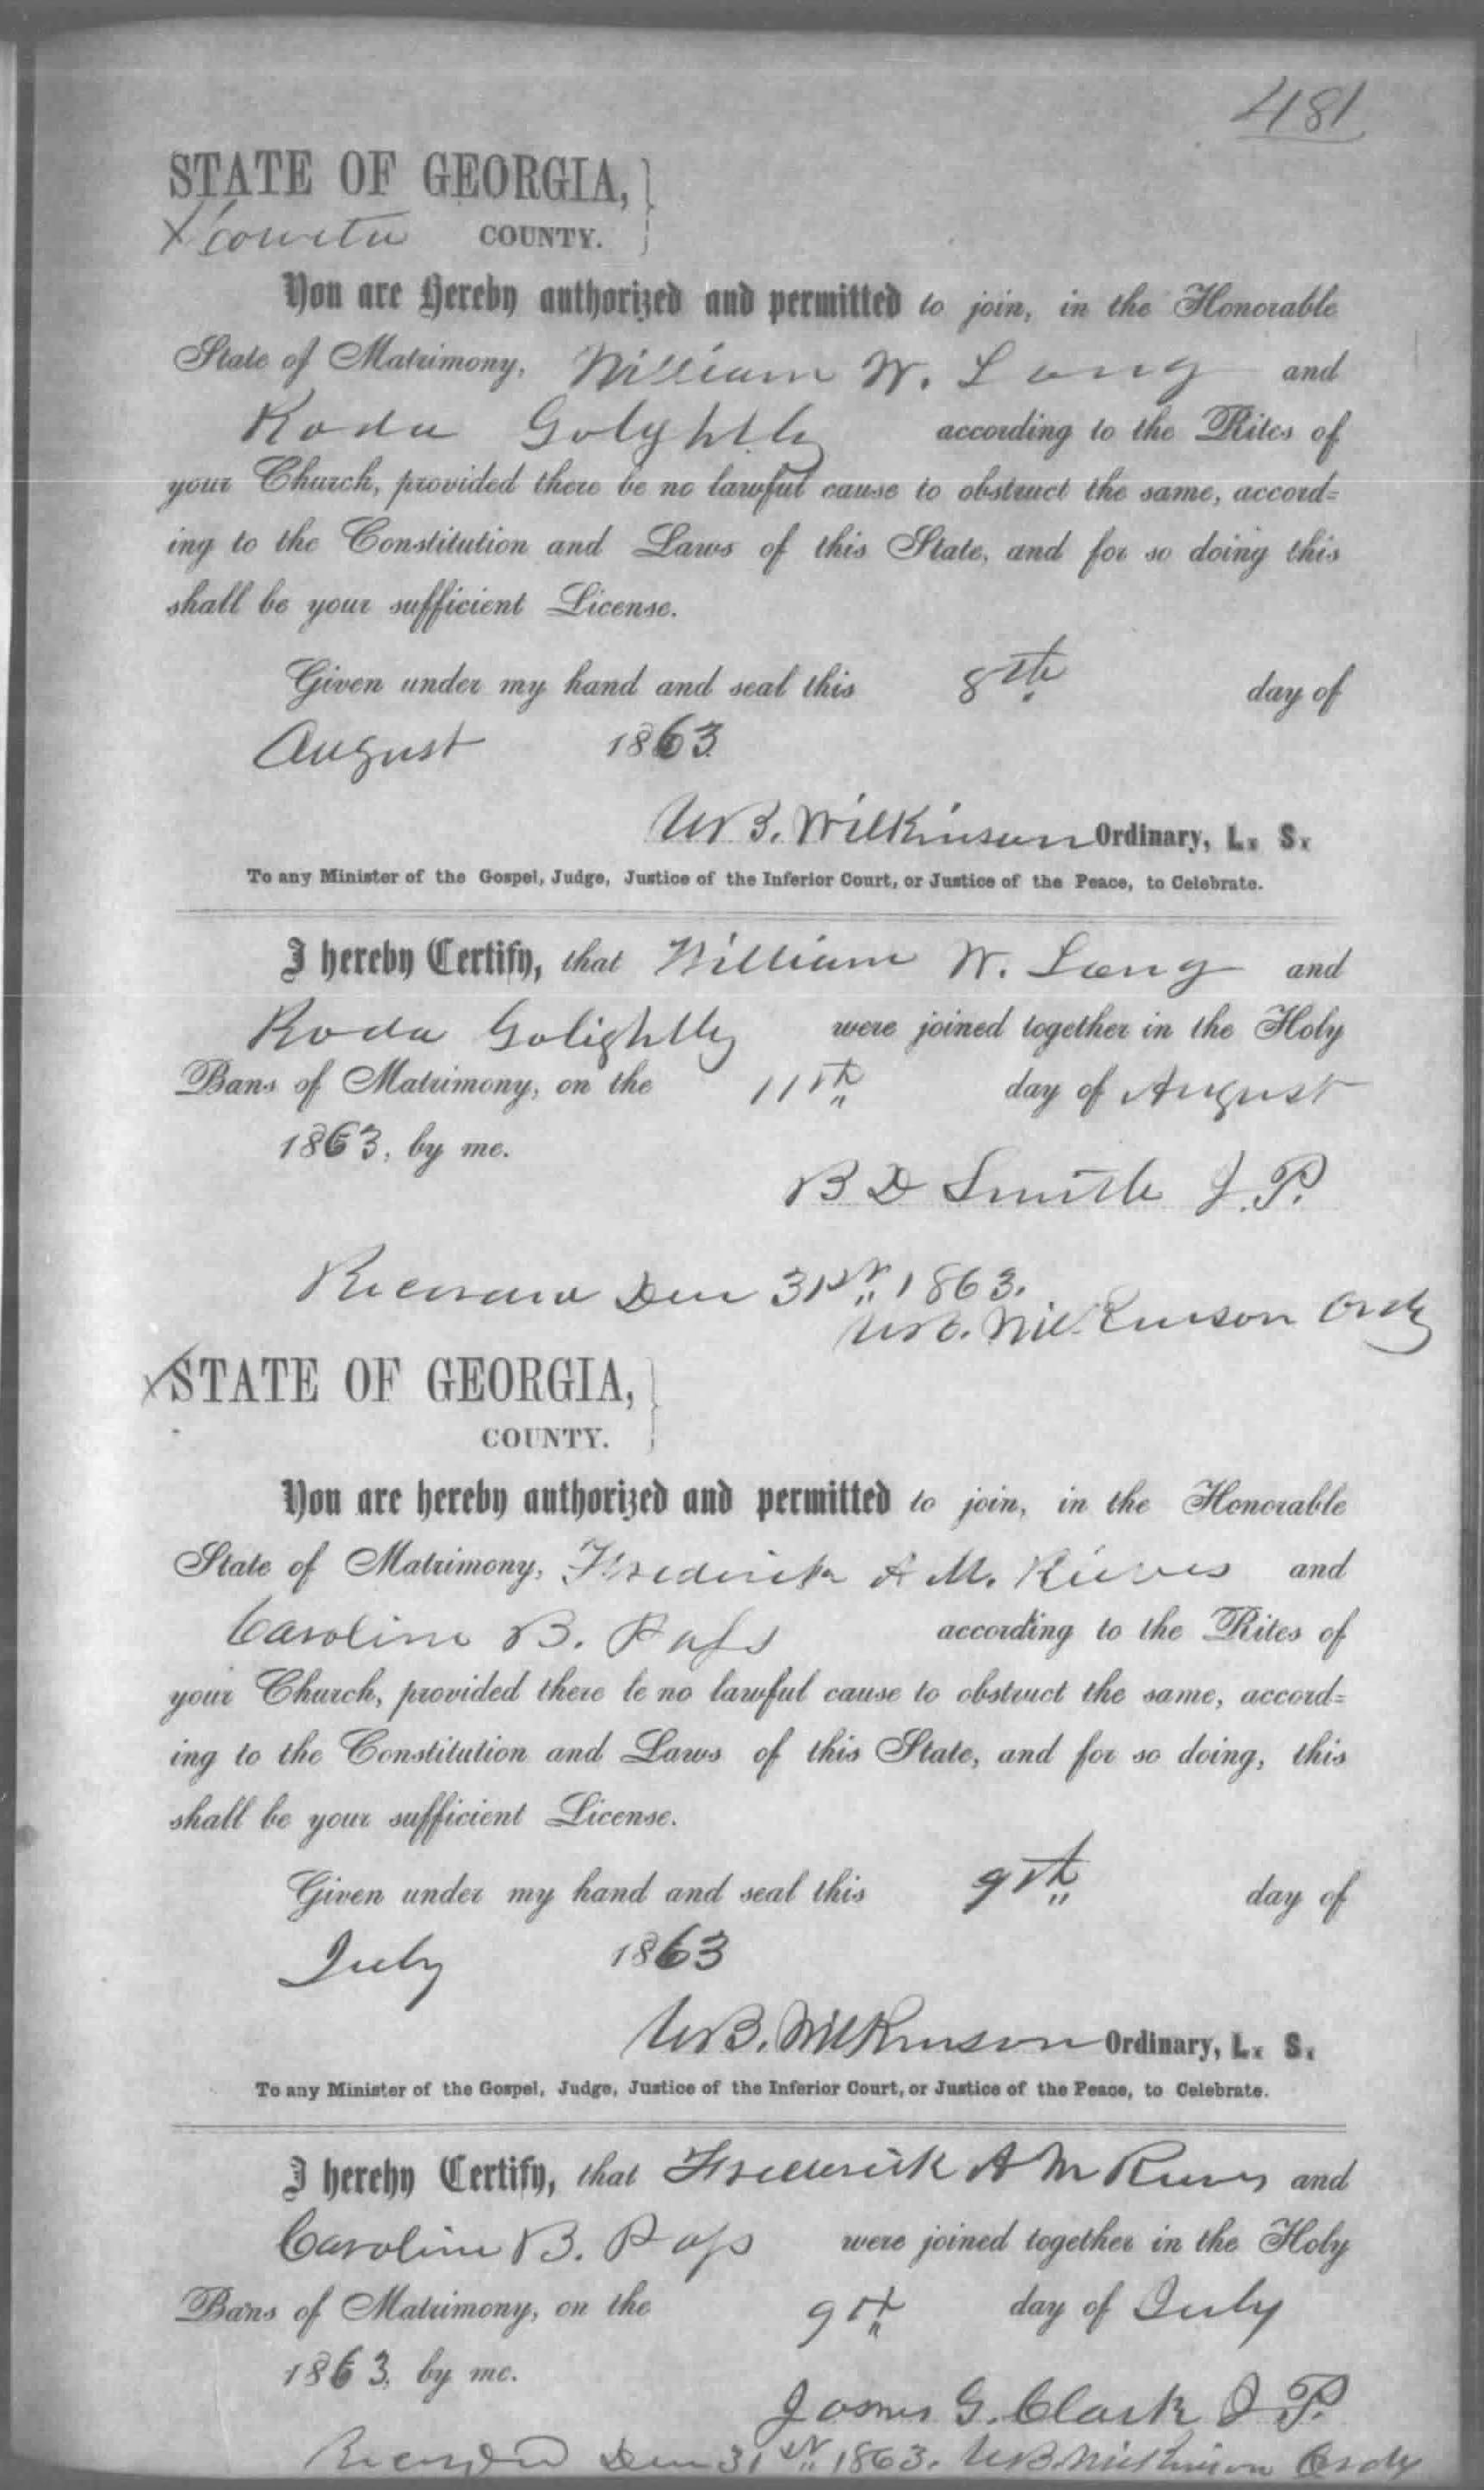 481
STATE OF GEORGIA,
Coweta COUNTY.
You are Hereby authorized and permitted to join, in the Honorable
State of Matrimony, William W. Long and
Roda Golyhtly according to the Rites of
your Church, provided there be no lawful cause to obstruct the same, accord=
ing to the Constitution and Laws of this State, and for so doing this
shall be your sufficient License.
Given under my hand and seal this 8th day of
August 1863
U.B. Wilkinson Ordinary, L. S.
To any Minister of the Gospel, Judge, Justice of the Inferior Court, or Justice of the Peace, to Celebrate.
I hereby Certify, that William W. Long and
Roda Golightly were joined together in the Holy
Bans of Matrimony, on the 11th day of August
1863, by me.
B D Smith J.P.
Recorded Dec 31st 1863.
U.B. Wilkinson Ordy
STATE OF GEORGIA,
COUNTY.
You are hereby authorized and permitted to join, in the Honorable
State of Matrimony, Frederick A M. Reeves and
Caroline B. according to the Rites of
your Church, provided there be no lawful cause to obstruct the same, accord=
ing to the Constitution and Laws of this State, and for so doing, this
shall be your sufficient License.
Given under my hand and seal this 9th day of
July 1863
U.B. Wilkinson Ordinary, L. S.
To any Minister of the Gospel, Judge, Justice of the Inferior Court, or Justice of the Peace, to Celebrate.
I hereby Certify, that Frederick A M Reeves and
Caroline B. were joined together in the Holy
Bans of Matrimony, on the 9th day of July
1863, by me.
James G. Clark J.P.
Recorded Dec 31st 1863. U.B. Wilkinson Ordy